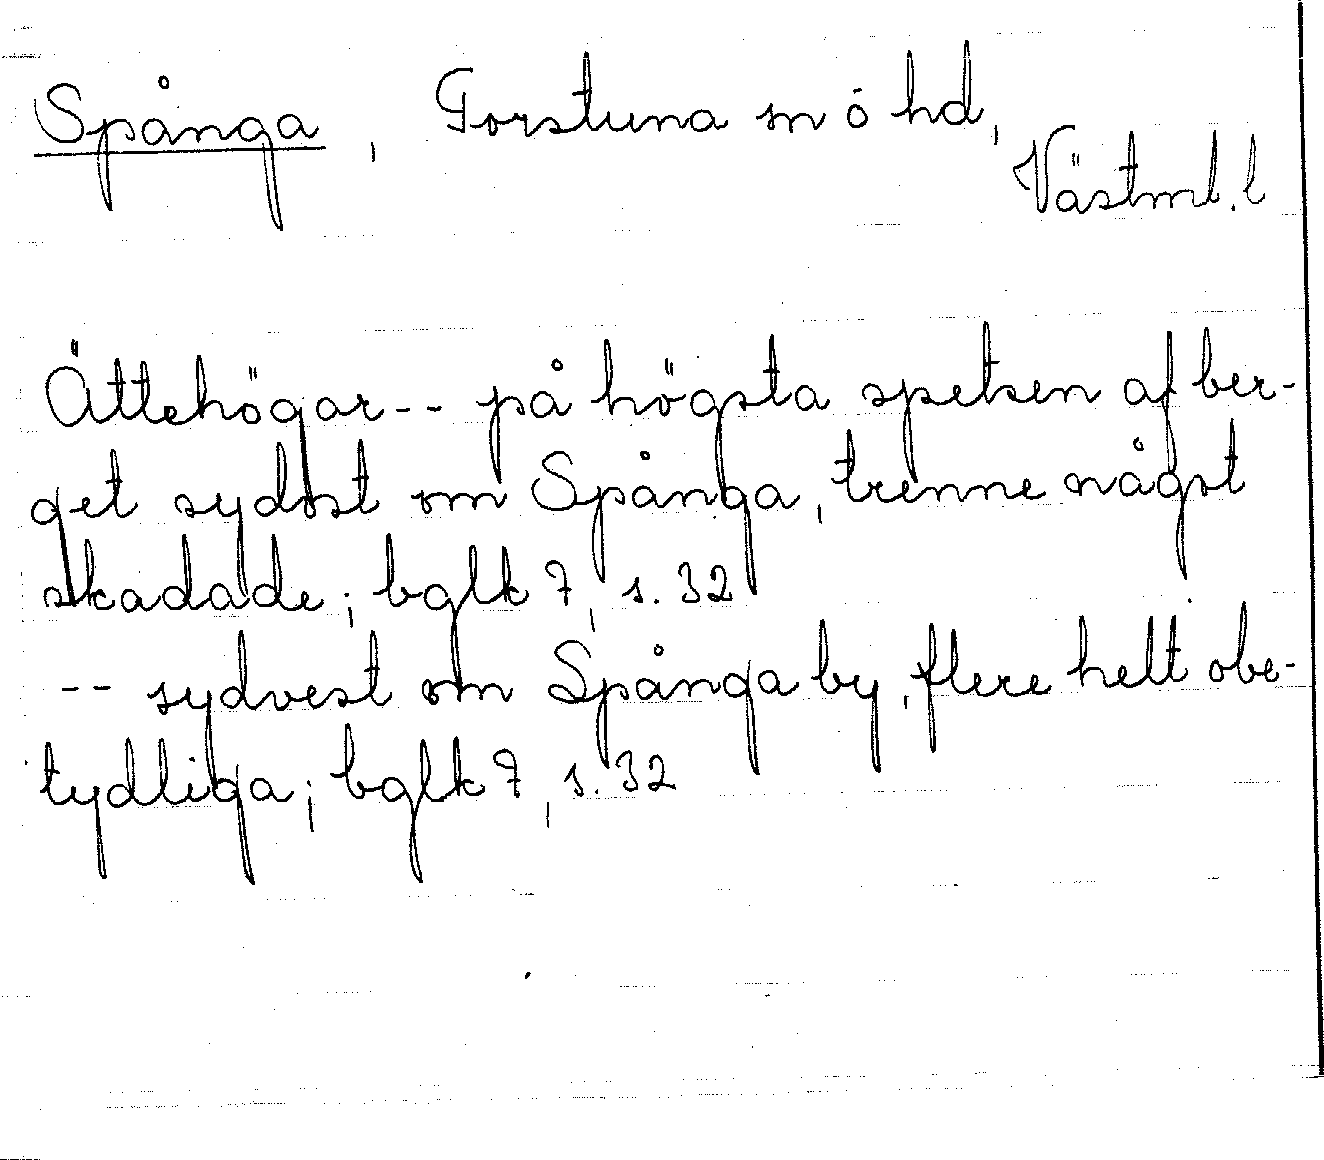 Spånga, Torstuna sn ó hd,
Västml. l
Ättehögar -- på högsta spetsen af ber-
get sydost om Spånga, trenne något
skadade; bglk 7, s. 32
-- sydvest om Spånga by, flere helt obe-
tydliga; bglk 7, s. 32